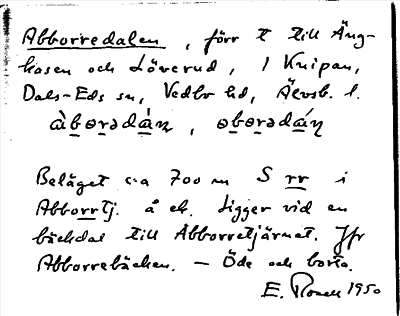 Abborredalen, förr t till Äng-
hasen och Löverud, 1 Knipan,
Dals-Eds sn, Vedbo hd, Älvsb. l.
àbɵrədán, ɵbɵrədán
Beläget c:a 700 m S rr i
Abborrtj. å ek. Ligger vid en
bäckdal till Abborretjärnet. Jfr
Abborrebäcken. — Öde och borta.
E. 1950